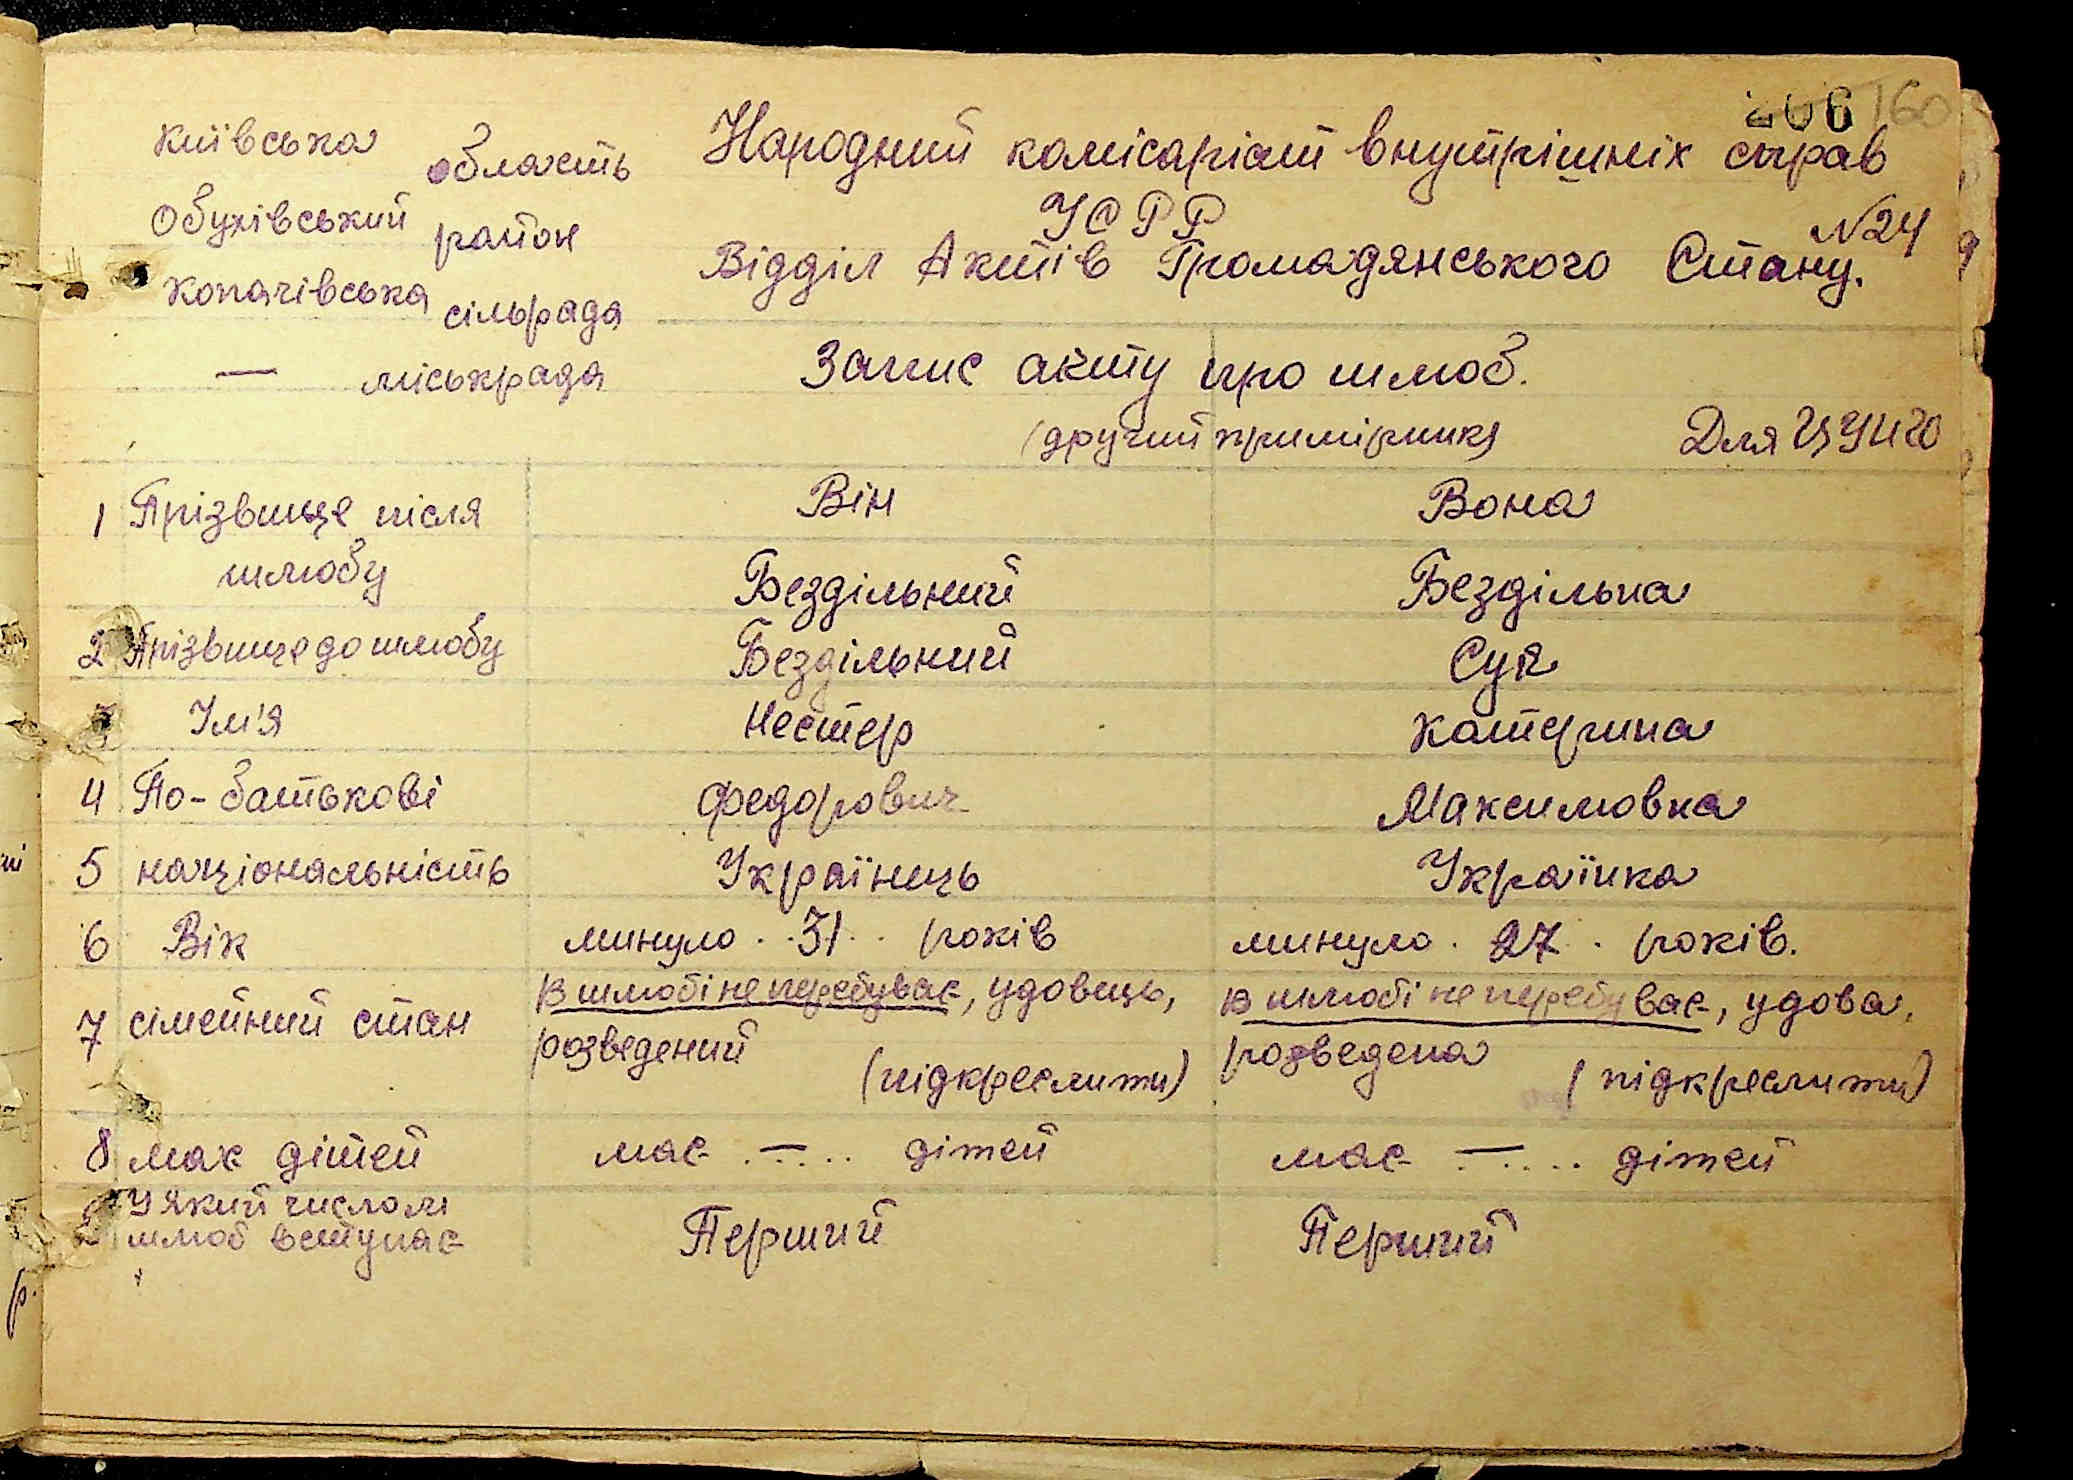 206 160
Київська область
Обухівський район
Копачівська сільрада
— міськрада
Народний комісаріат внутрішніх справ
УСРР
№24
Відділ Актів Громадянського Стану.
Запис акту про шлюб.
(другий примірник) Для ЦУНГО
Він Вона
1 Прізвище після шлюбу Бездільний Бездільна
2 Прізвище до шлюбу Бездільний Суя
3 Ім'я Нестер Катерина
4 По-батькові Федорович Максимовна
5 національність Українець Українка
6 Вік минуло . . 31 . . років минуло . 27 . . років.
7 сімейний стан в шлюбі не перебуває, удовець, розведений (підкреслити) в шлюбі не перебуває, удова, розведена (підкреслити)
8 має дітей має . — . . . . дітей має . — . . . . дітей
9 У який числом шлюб вступає Перший Перший